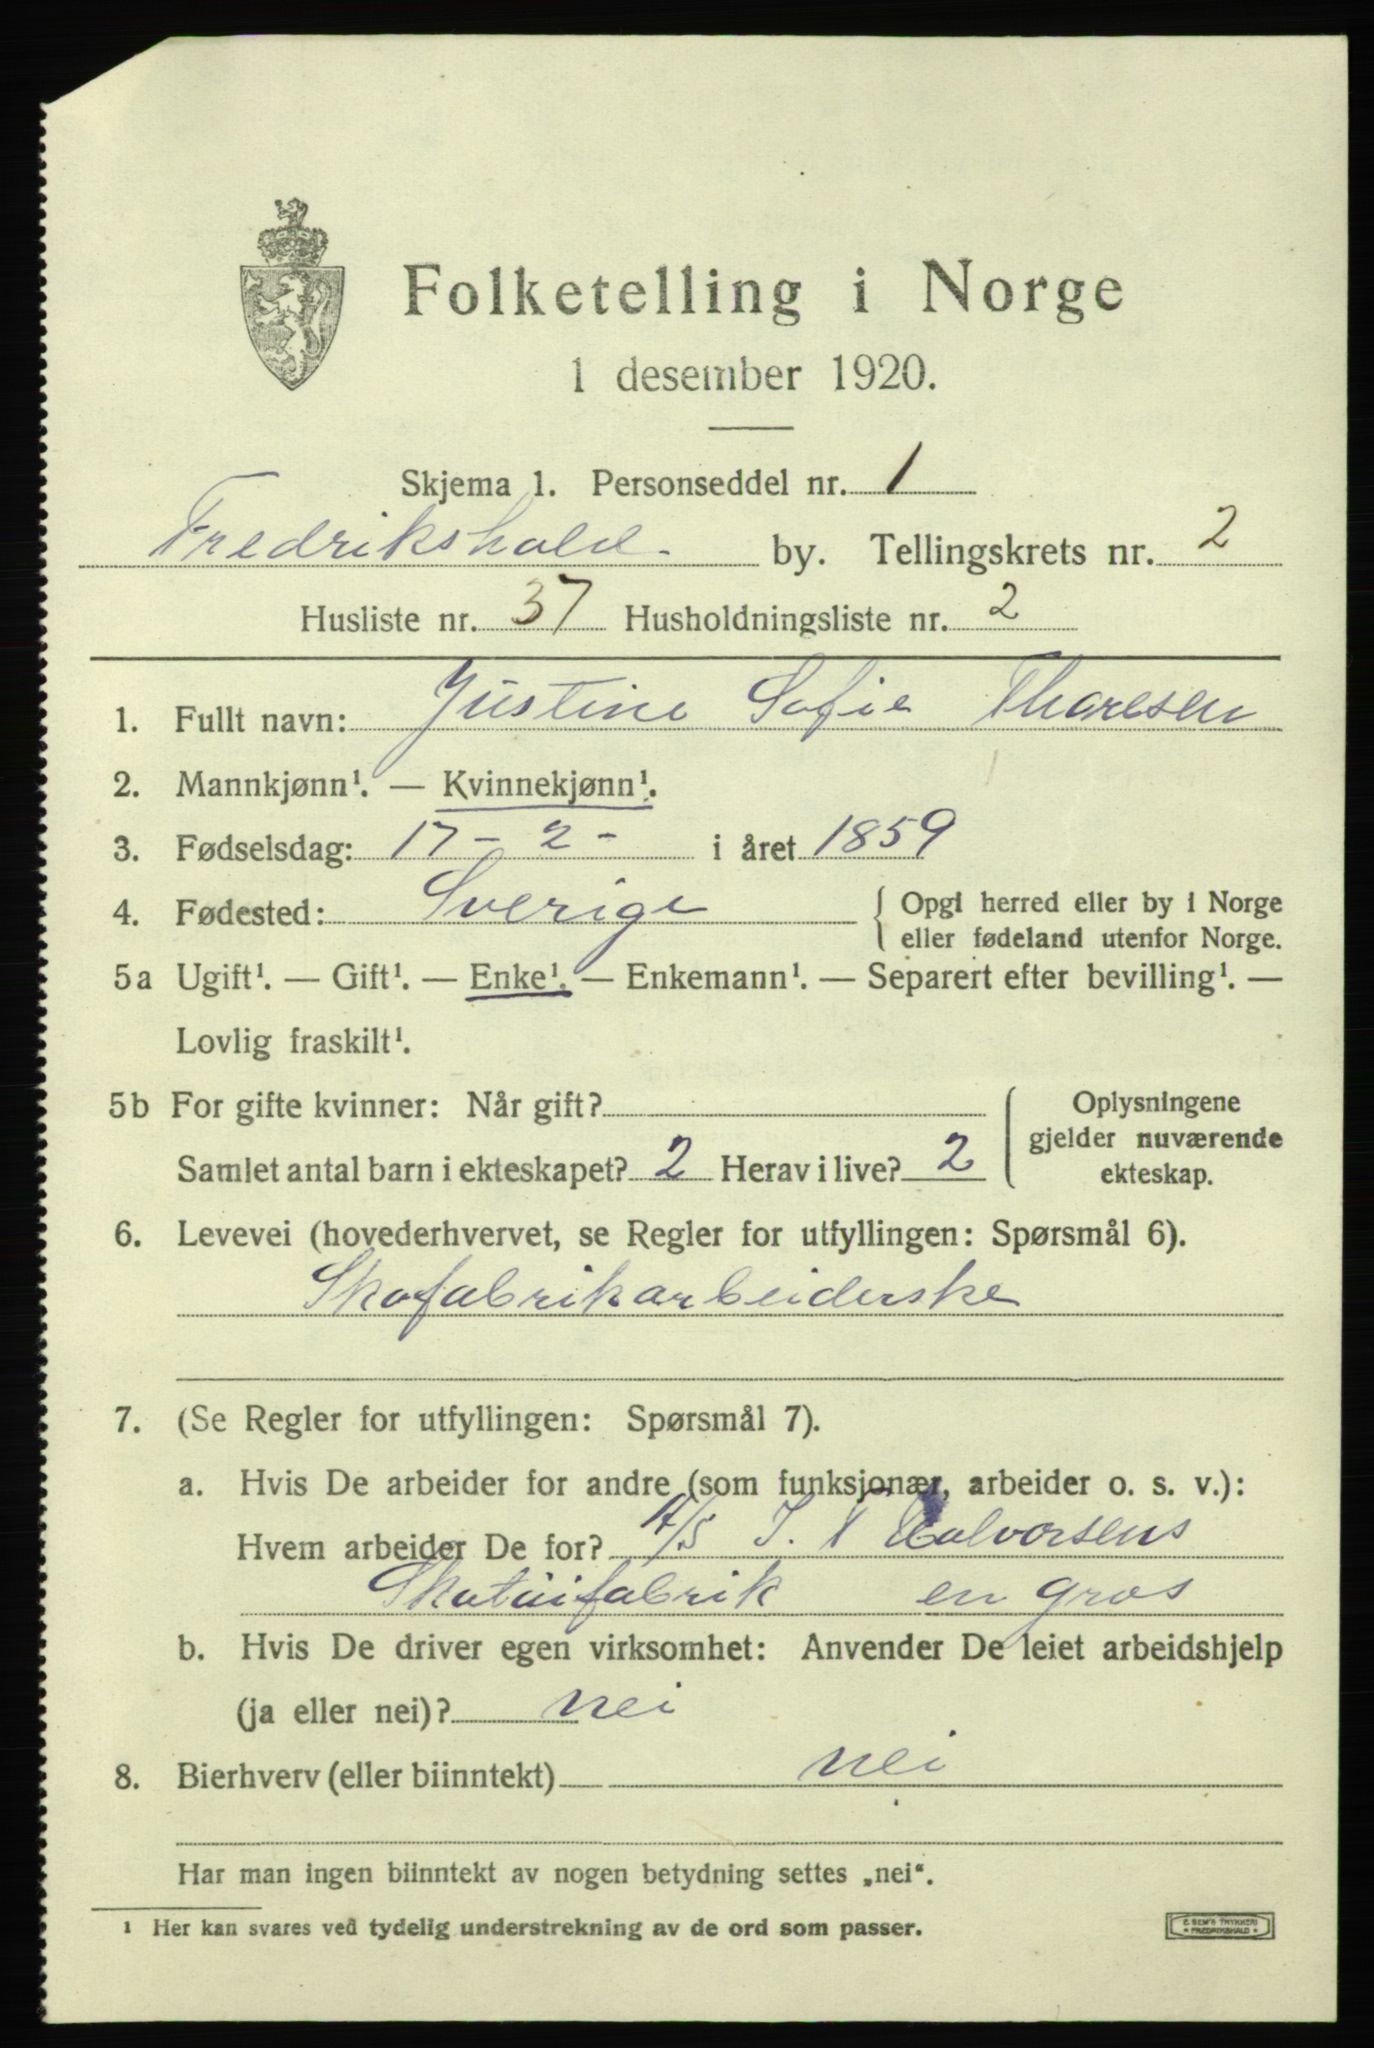 Folketelling i Norge
1 desember 1920.
Skjema 1. Personseddel nr. 1
Fredrikshald. by. Tellingskrets nr. 2
Husliste nr. 37 Husholdningsliste nr. 2
1. Fullt navn: Justine Sofie Thoresen
2. Mannkjønn¹. — Kvinnekjønn¹.
3. Fødselsdag: 17 - 2 - i året 1859
4. Fødested: Sverige { Opgi herred eller by i Norge
eller fødeland utenfor Norge.
5a Ugift¹. — Gift¹. — Enke¹. — Enkemann¹. — Separert efter bevilling¹. —
Lovlig fraskilt¹.
5b For gifte kvinner: Når gift?
Samlet antal barn i ekteskapet? 2 Herav i live? 2
Oplysningene
gjelder nuværende
ekteskap.
6. Levevei (hovederhvervet, se Regler for utfyllingen: Spørsmål 6).
Skofabrikarbeiderske
7. (Se Regler for utfyllingen: Spørsmål 7).
a. Hvis De arbeider for andre (som funksjonær, arbeider o. s. v.):
Hvem arbeider De for? A/S J. Halvorsens
Skotöifabrik en gros
b. Hvis De driver egen virksomhet: Anvender De leiet arbeidshjelp
(ja eller nei)? nei
8. Bierhverv (eller biinntekt) nei
Har man ingen biinntekt av nogen betydning settes „nei“.
¹ Her kan svares ved tydelig understrekning av de ord som passer.
E SEM'S TRYKKERI
FREDRIKSHALD